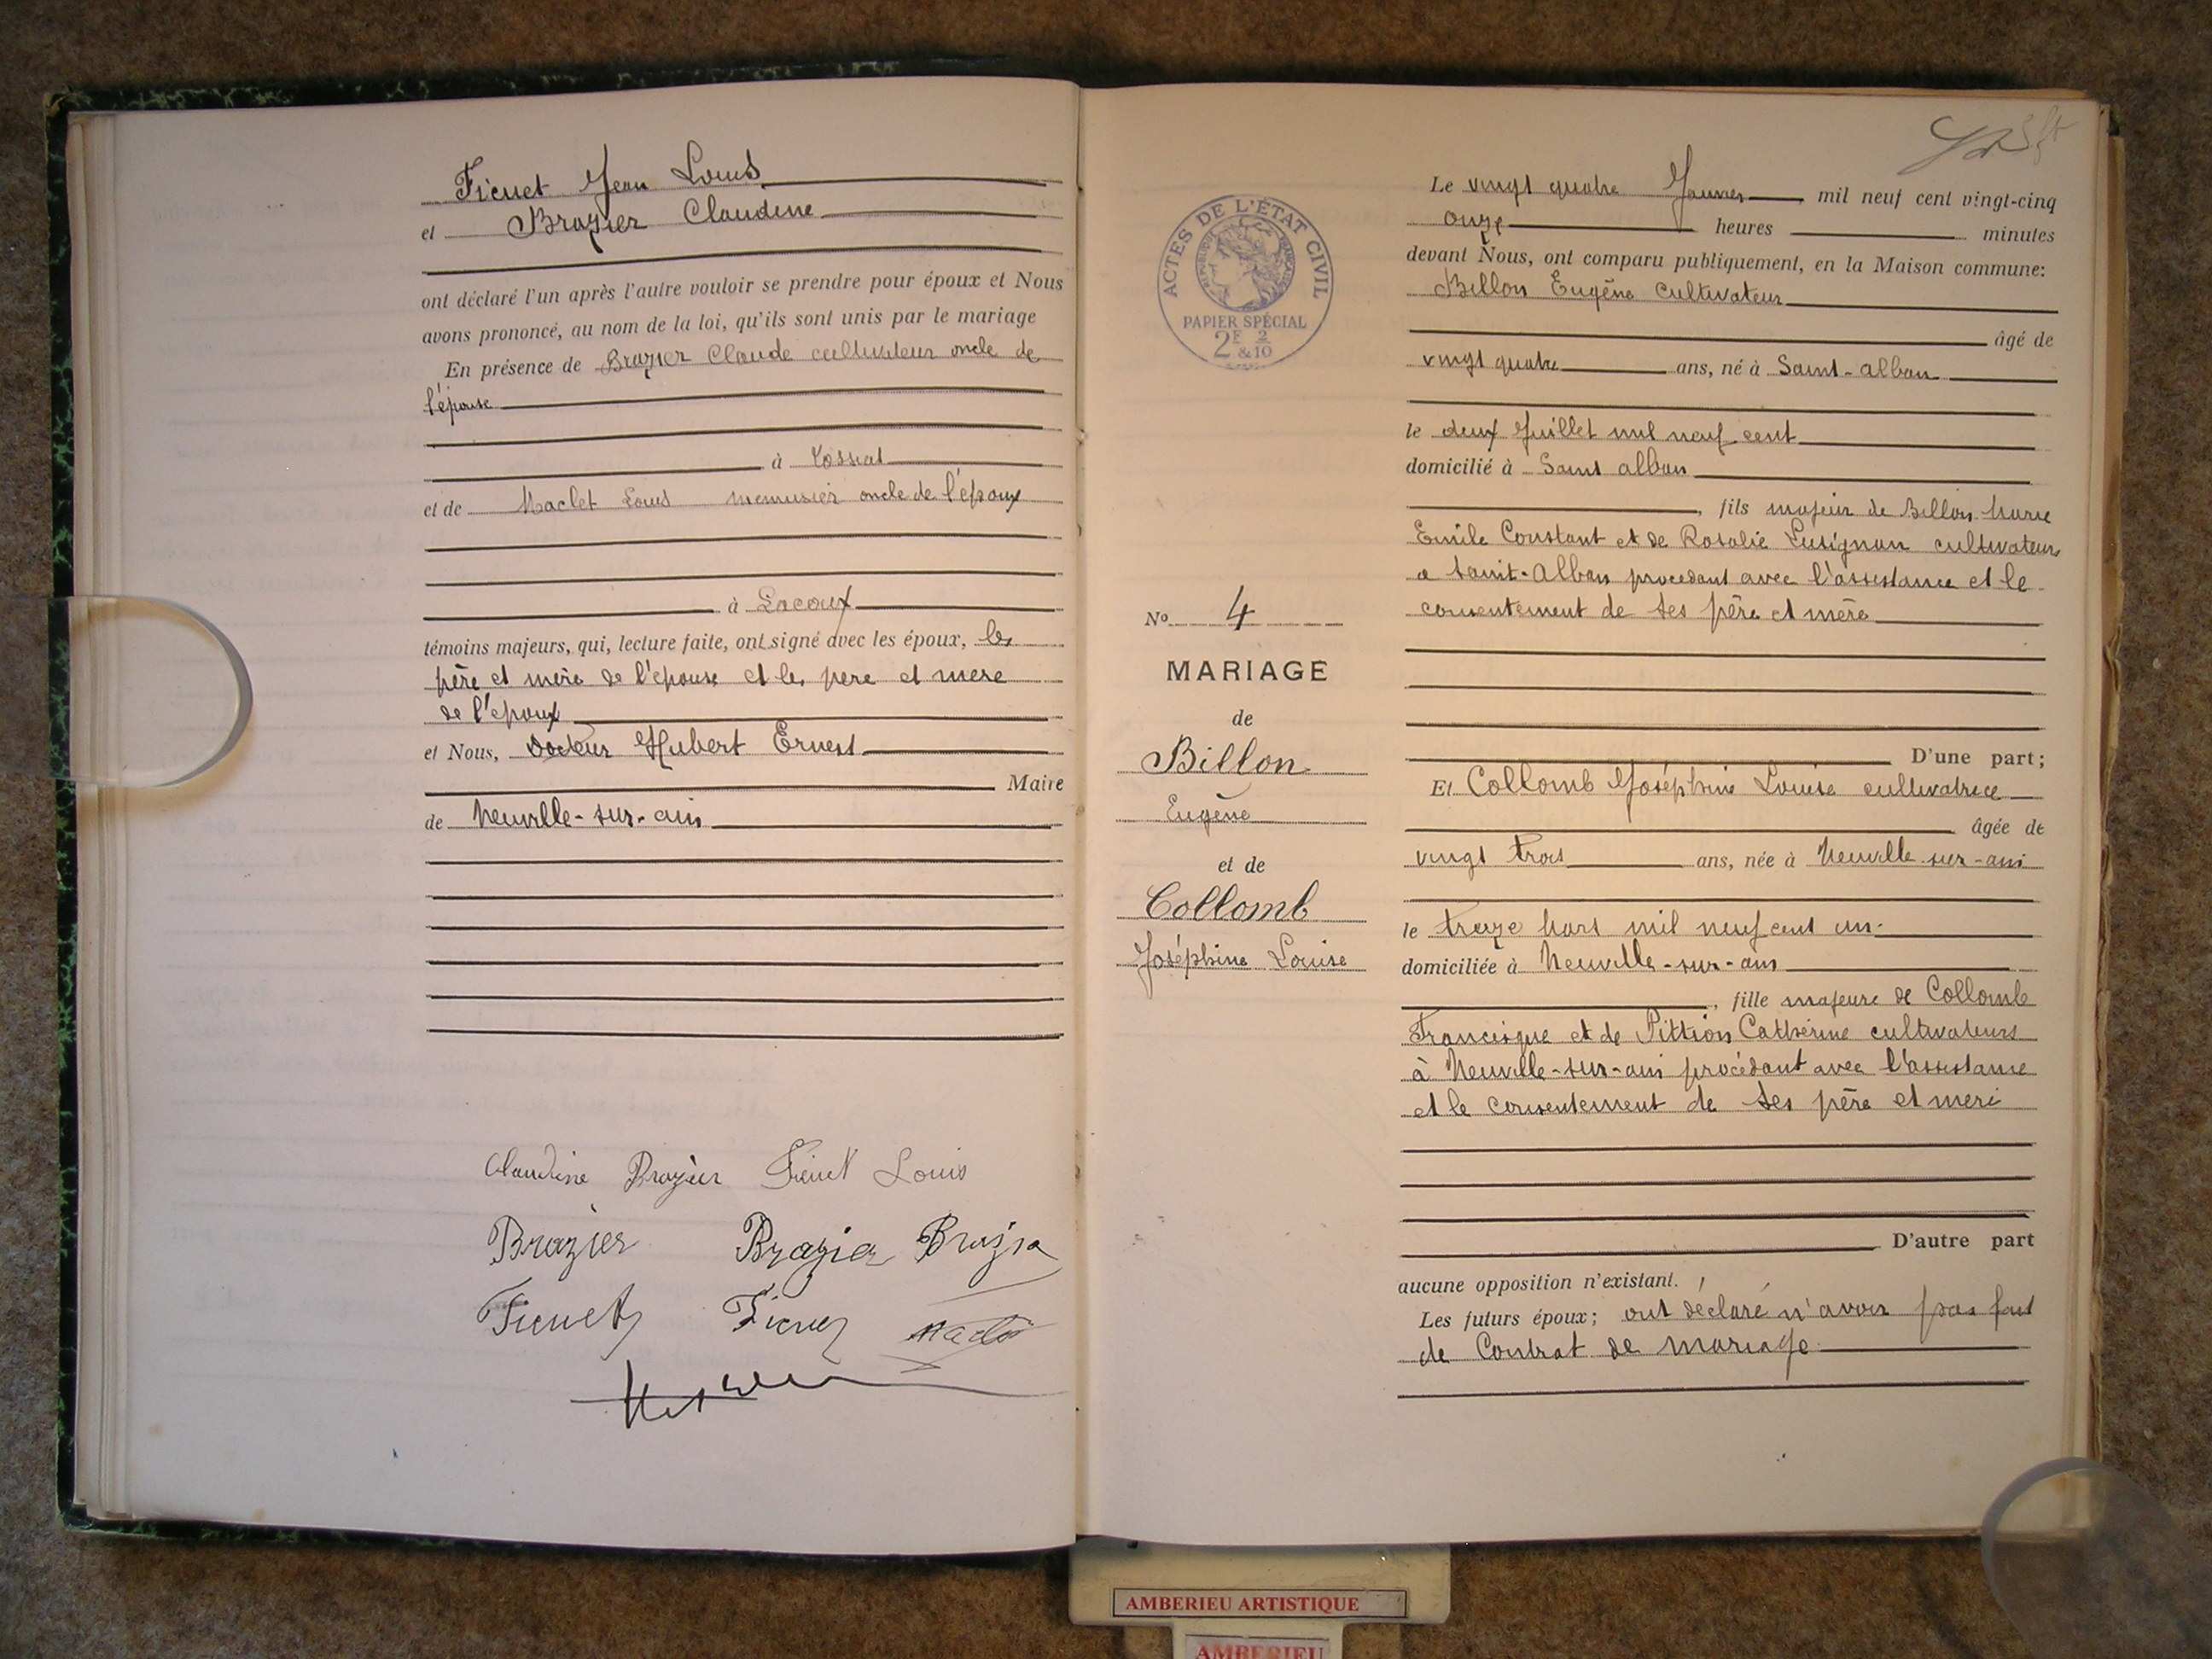 Ficuet Jean Louis
et Brazier Claudine
ont déclaré l'un après l'autre vouloir se prendre pour époux et Nous
avons prononcé, au nom de la loi, qu'ils sont unis par le mariage
En présence de Brazier Claude cultivateur oncle de
l'épouse
à Tossiat
et de Maclet Louis menuisier oncle de l'époux
à Lacoux
témoins majeurs, qui, lecture faite, ont signé avec les époux, les
père et mère de l'épouse et les pere et mere
de l'epoux
et Nous, Docteur Hubert Ernest
Maire
de Neuville-sur-ain
Claudine Brazier Ficuet Louis
Brazier Brazier
Ficuet
ACTES DE L'ÉTAT CIVIL
RÉPUBLIQUE FRANÇAISE
PAPIER SPÉCIAL
2E 2
& 10
No 4
MARIAGE
de
Billon
Eugène
et de
Collomb
Joséphine Louise
Le vingt quatre Janvier mil neuf cent vingt-cinq
onze heures minutes
devant Nous, ont comparu publiquement, en la Maison commune:
Billon Eugène cultivateur
âgé de
vingt quatre ans, né à Saint-alban
le deux Juillet mil neuf cent
domicilié à Saint alban
, fils majeur de Billon Marie
Emile Constant et de Rosalie Lusignan cultivateurs
a Saint-Alban procedant avec l'assistance et le
consentement de ses père et mère
D'une part;
Et Collomb Joséphine Louise cultivatrice
âgée de
vingt trois ans, née à Neuville sur-ain
le treize Mars mil neuf cent un
domiciliée à Neuville-sur-ain
, fille majeure de Collomb
Francisque et de Pittion Catherine cultivateurs
à Neuville-sur-ain procédant avec l'assistance
et le consentement de ses père et mere
D'autre part
aucune opposition n'existant.
Les futurs époux; ont déclaré n'avoir pas fait
de Contrat de mariage
AMBERIEU ARTISTIQUE
AMBERIEU